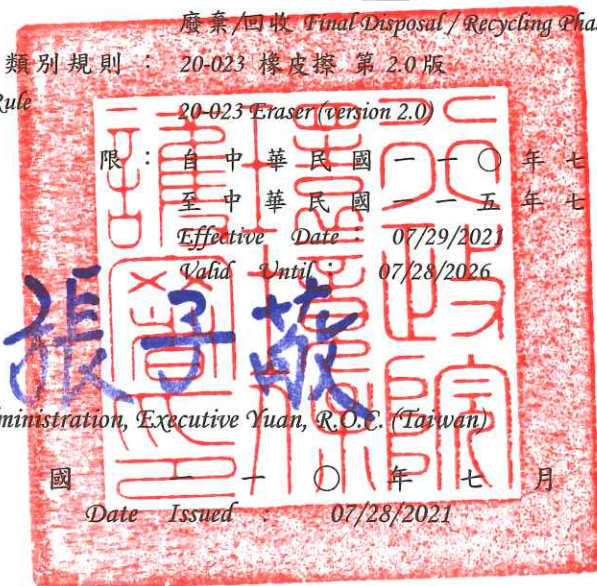 廢棄/回收 Final Disposal / Recycling Pha
類別規則 : 20-023 橡皮擦 第 2.0 版
Rule 20-023 Eraser (version 2.0)
限 : 自中華民國一一〇年七
至中華民國一一五年七
Effective Date : 07/29/2021
Valid Until : 07/28/2026
張子敬
ministration, Executive Yuan, R.O.C. (Taiwan)
國 一一〇年七月
Date Issued : 07/28/2021
行政院環境保護署印